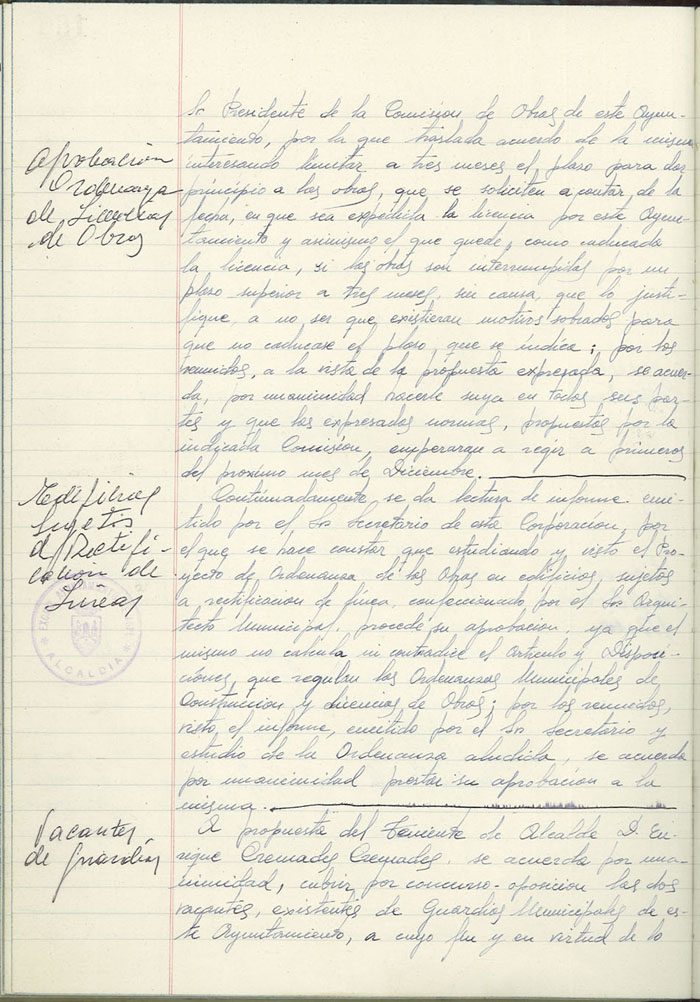 Sr Presidente de la Comision de Obras de este Ayun-
tamiento, por la que traslada acuerdo de la misma
interesando limitar a tres meses el plazo para dar
principio a las obras, que se soliciten a contar de la
fecha, en que sea expedida la licencia por este Ayun-
tamiento y asimismo el que quede, como caducada
la licencia, si las obras son interrumpidas por un
plazo superior a tres meses, sin causa, que lo justi-
fique, a no ser que existieran motivos sobrados para
que no caducase el plazo, que se indica; por los
reunidos, a la vista de la propuesta expresada, se acuer-
da, por unanimidad hacerla suya en todas sus par-
tes y que las expresadas normas, propuestas por la
indicada Comisión, empezaran a regir a primeros
del proximo mes de Diciembre.
Aprobación
Ordenanza
de Licencias
de Obras
Continuadamente, se da lectura de informe emi-
tido por el Sr Secretario de esta Corporación, por
el que se hace constar que estudiando y visto el Pro-
yecto de Ordenanza de las Obras en edificios, sujetos
a rectificacion de finca, confeccionado por el Sr Arqui-
tecto Municipal, procede su aprobacion, ya que el
mismo no ni contradice el Articulo y Disposi-
ciones, que regulan las Ordenanzas Municipales de
Construccion y Licencias de Obras; por los reunidos,
visto el informe, emitido por el Sr Secretario y
estudio de la Ordenanza aludida, se acuerda
por unanimidad prestar su aprobacion a la
misma.
Edificios
Sujetos
a Rectifi-
cación de
Lineas
ALCALDIA
A propuesta del Teniente de Alcalde D. En-
rique Cremades Cremades, se acuerda por una-
nimidad, cubrir por concurso-oposicion las dos
vacantes, existentes de Guardias Municipales de es-
te Ayuntamiento, a cuyo fin y en virtud de lo
Vacantes
de Guardias